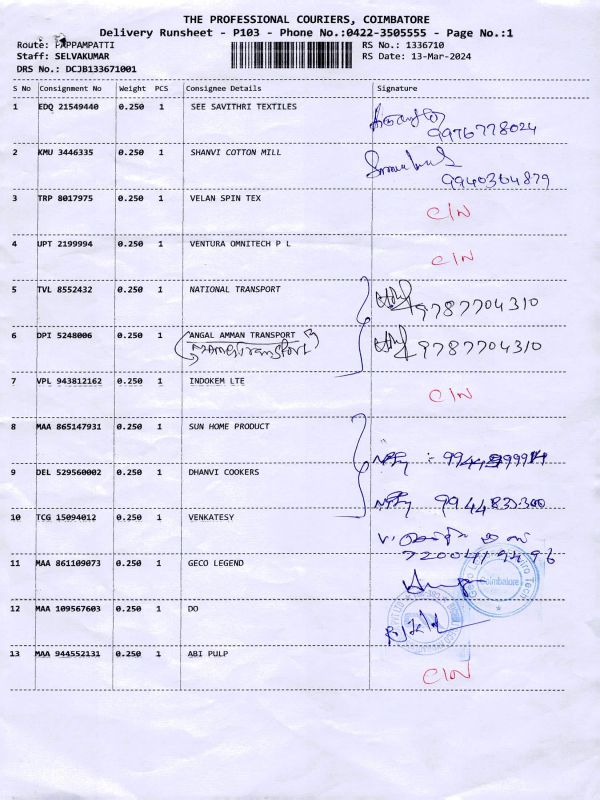 THE PROFESSIONAL COURIERS, COIMBATORE
Delivery Runsheet - P103 - Phone No.:0422-3505555 - Page No.:1
Route: PAPPAMPATTI
RS No.: 1336710
Staff: SELVAKUMAR
RS Date: 13-Mar-2024
DRS No.: DCJB133671001
S No Consignment No Weight PCS Consignee Details Signature
1 EDQ 21549440 0.250 1 SEE SAVITHRI TEXTILES
9976778024
2 KMU 3446335 0.250 1 SHANVI COTTON MILL
9940364879
3 TRP 8017975 0.250 1 VELAN SPIN TEX
C/N
4 UPT 2199994 0.250 1 VENTURA OMNITECH P L
C/N
5 TVL 8552432 0.250 1 NATIONAL TRANSPORT
9787704310
6 DPI 5248006 0.250 1 ANGAL AMMAN TRANSPORT
9787704310
7 VPL 943812162 0.250 1 INDOKEM LTE
C/N
8 MAA 865147931 0.250 1 SUN HOME PRODUCT
9 DEL 529560002 0.250 1 DHANVI COOKERS
10 TCG 15094012 0.250 1 VENKATESY
11 MAA 861109073 0.250 1 GECO LEGEND
Coimbatore
12 MAA 109567603 0.250 1 DO
13 MAA 944552131 0.250 1 ABI PULP
C/N